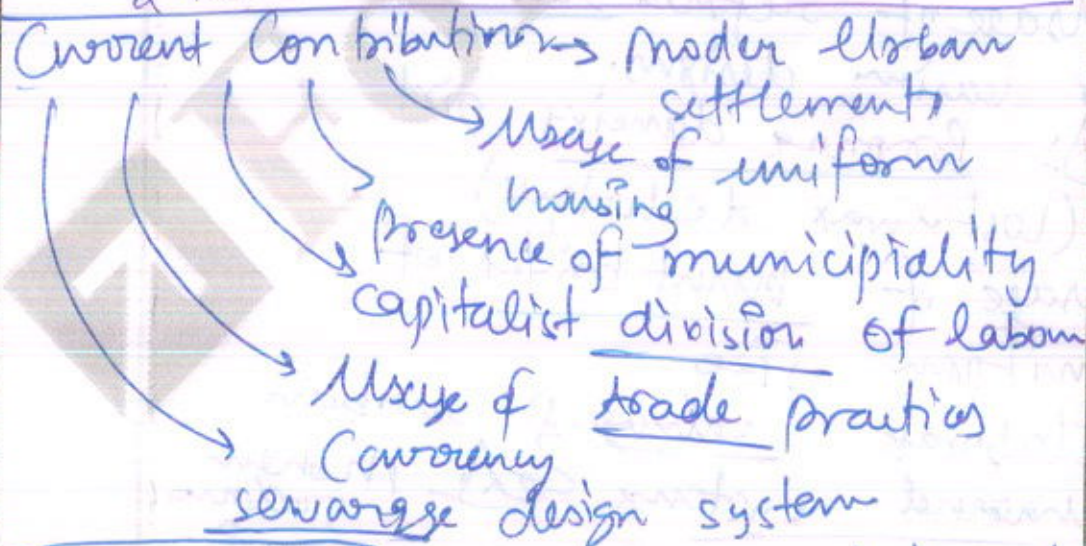 Current Contributions → moder Urban
settlements
Usage of uniform
housing
Presence of municipiality
capitalist division of labour
Usage of trade practices
Currency
sewarage design system